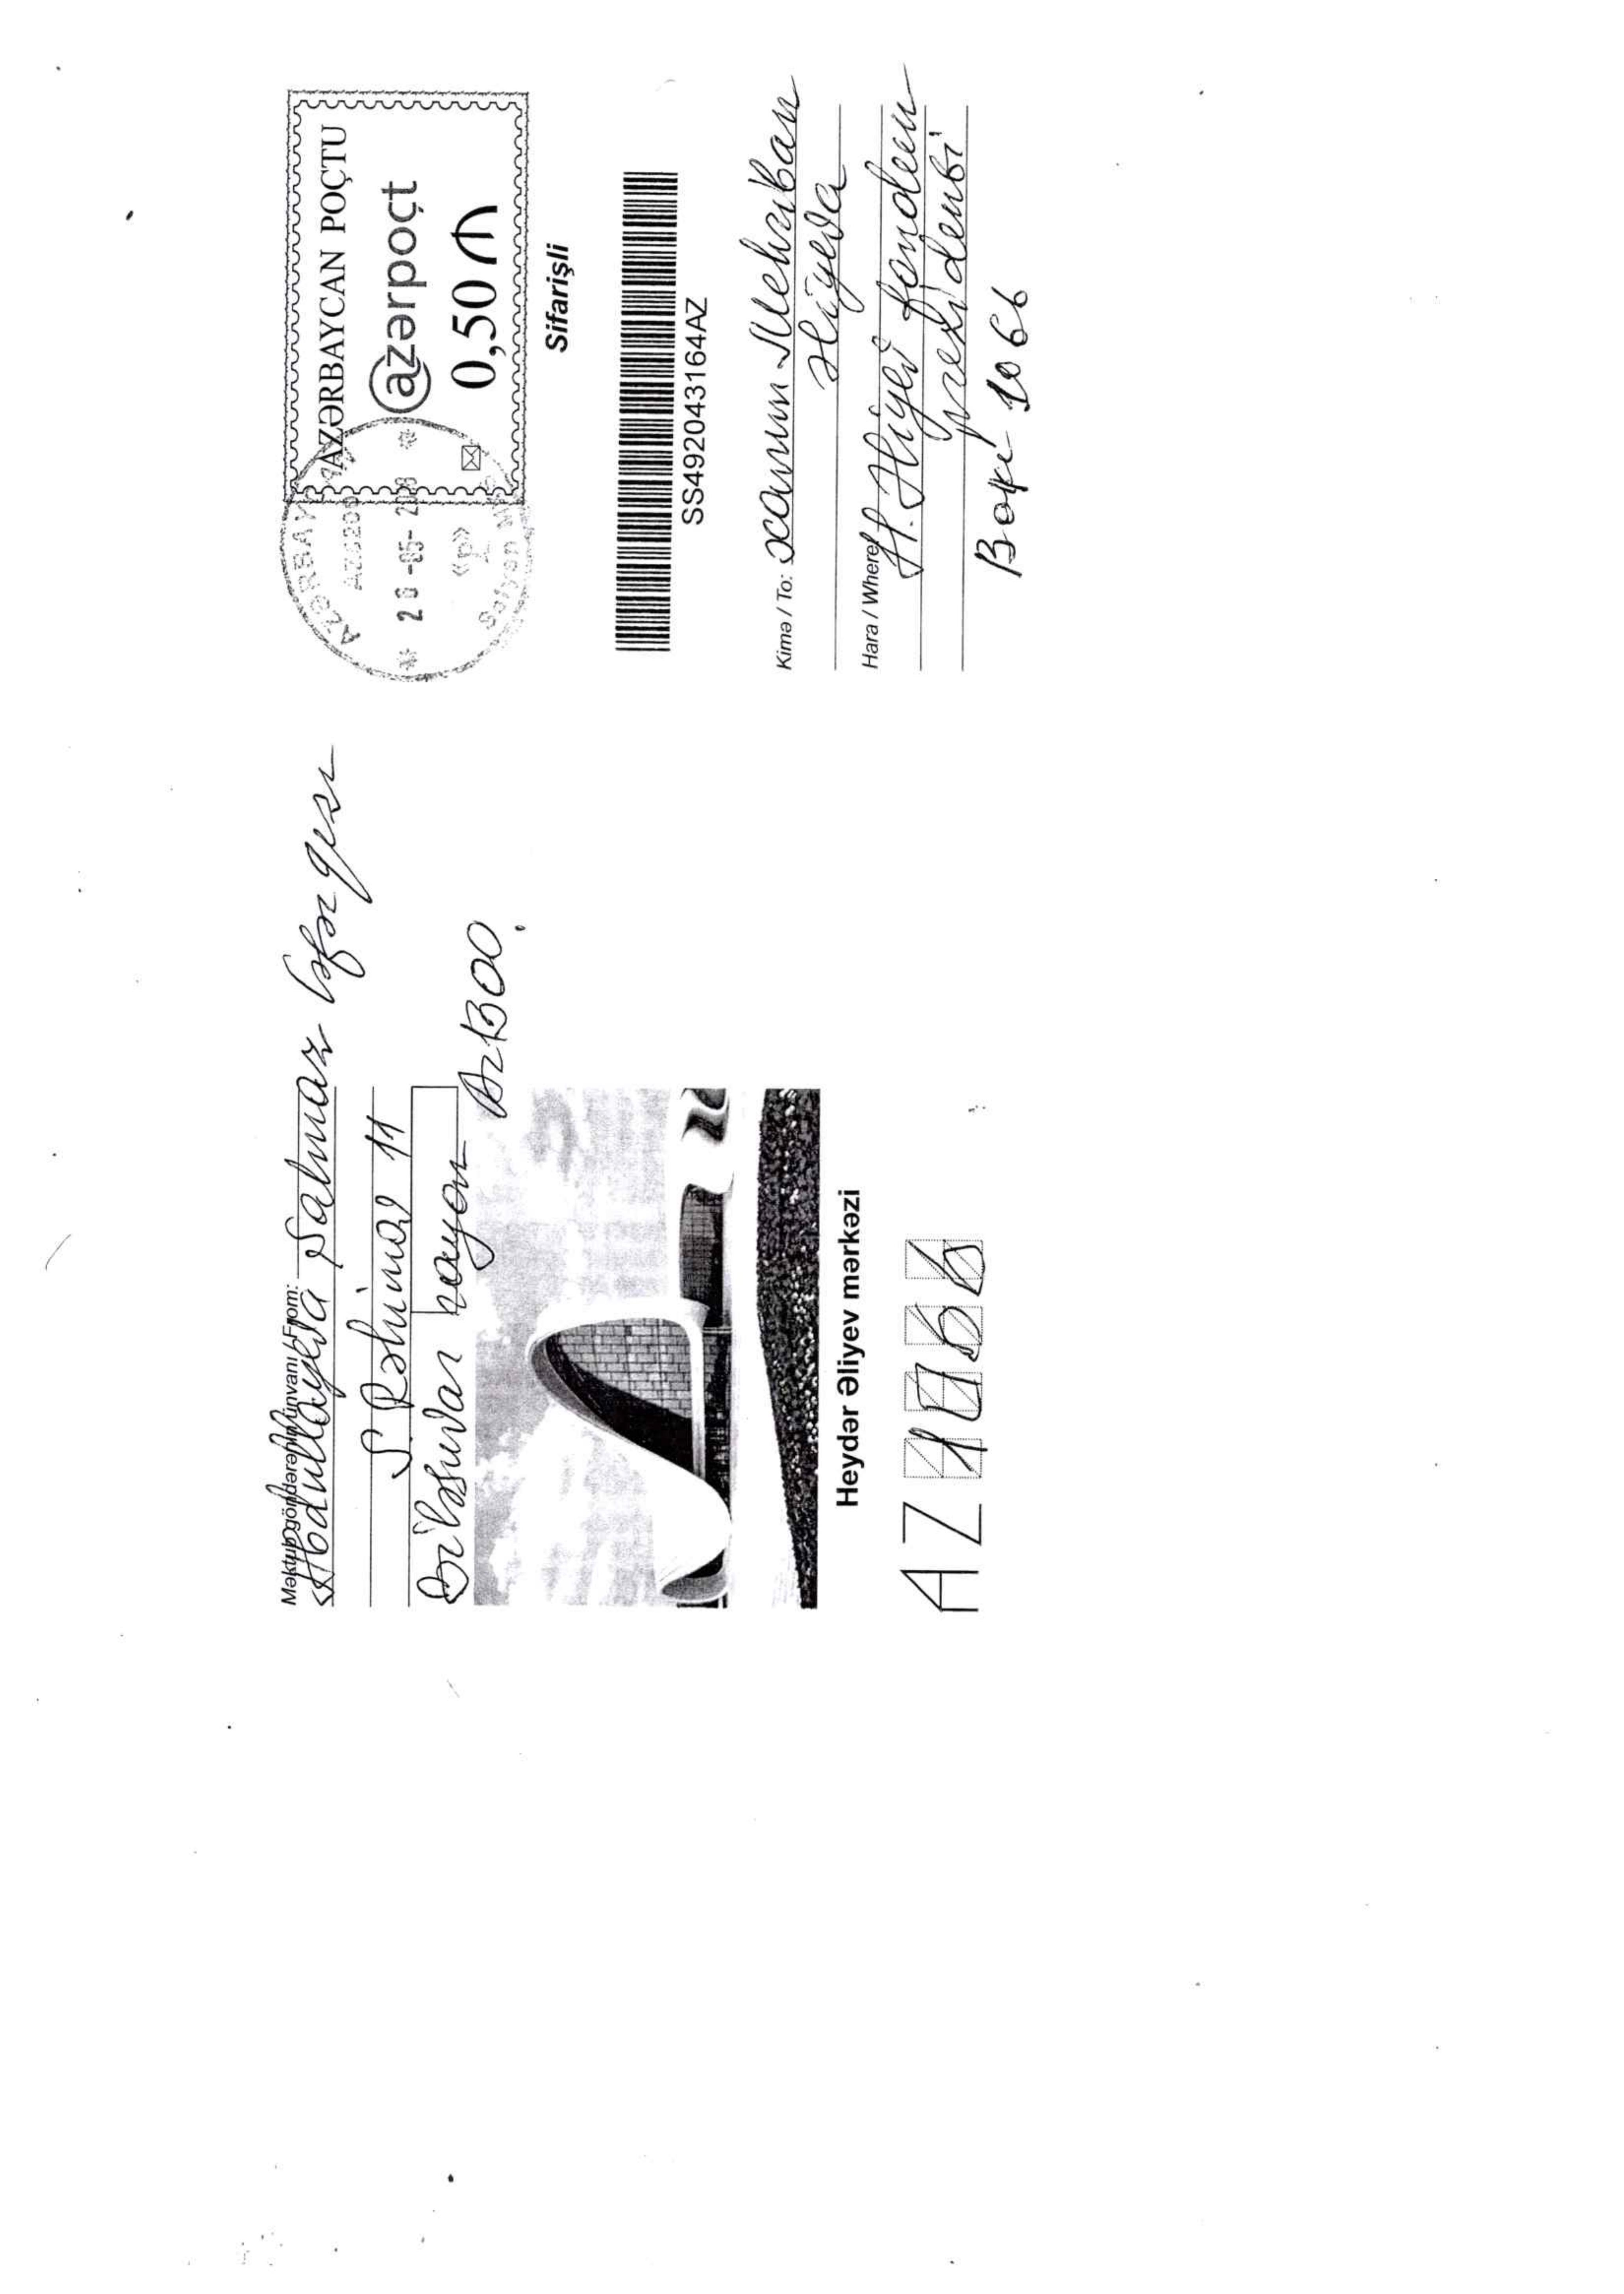 Məktub göndərənin ünvanı / From:
Abdullayeva Salmaz Cəfər qızı
S. Rəhimov 11
Biləsuvar rayon
Az1300.
Heydər Əliyev mərkəzi
AZ 1066
AZƏRBAYCAN POÇTU
@zərpoçt
0,50 ₼
AZƏRBAY
-05-
«P»
Sifarişli
SS492043164AZ
Kimə / To: xanım Mehriban
Əliyeva
Hara / Where: H. Əliyev fondun
prezidenti
Bakı 1066